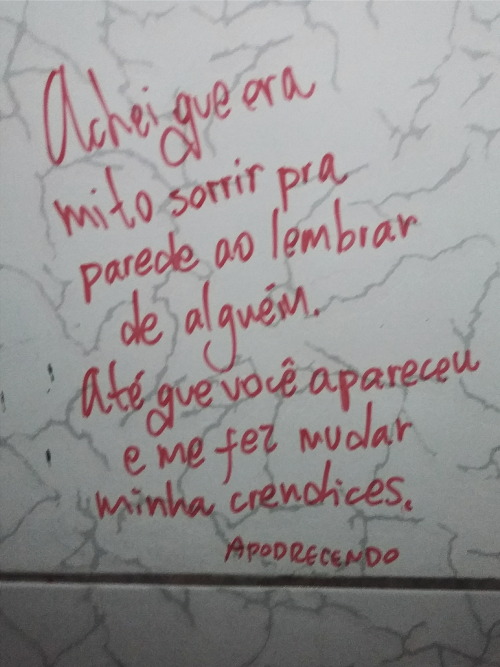 Achei que era
mito sorrir pra
parede ao lembrar
de alguém.
Até que você apareceu
e me fez mudar
minha crendices.
APODRECENDO